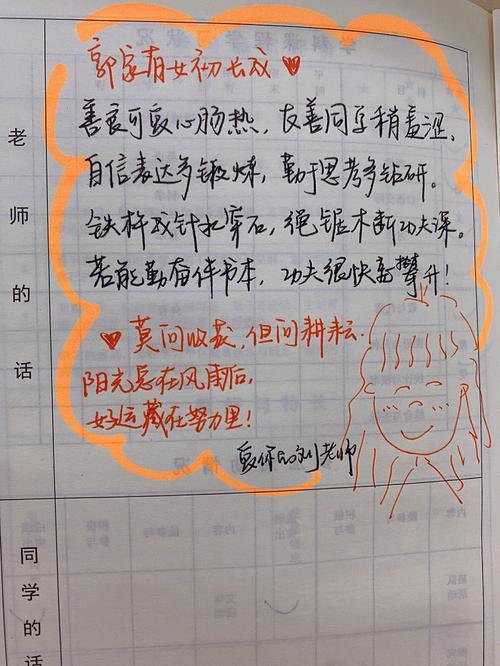 郭家有女初长成
善良可爱心肠热，友善同学稍羞涩、
自信表达多锻炼，勤于思考多钻研。
铁杵成针水穿石，绳锯木断功夫深。
若能勤奋伴书本，功夫很快高攀升！
莫问收获，但问耕耘.
阳光总在风雨后，
好运藏在努力里！
爱你的刘老师
老师的话
同学的话